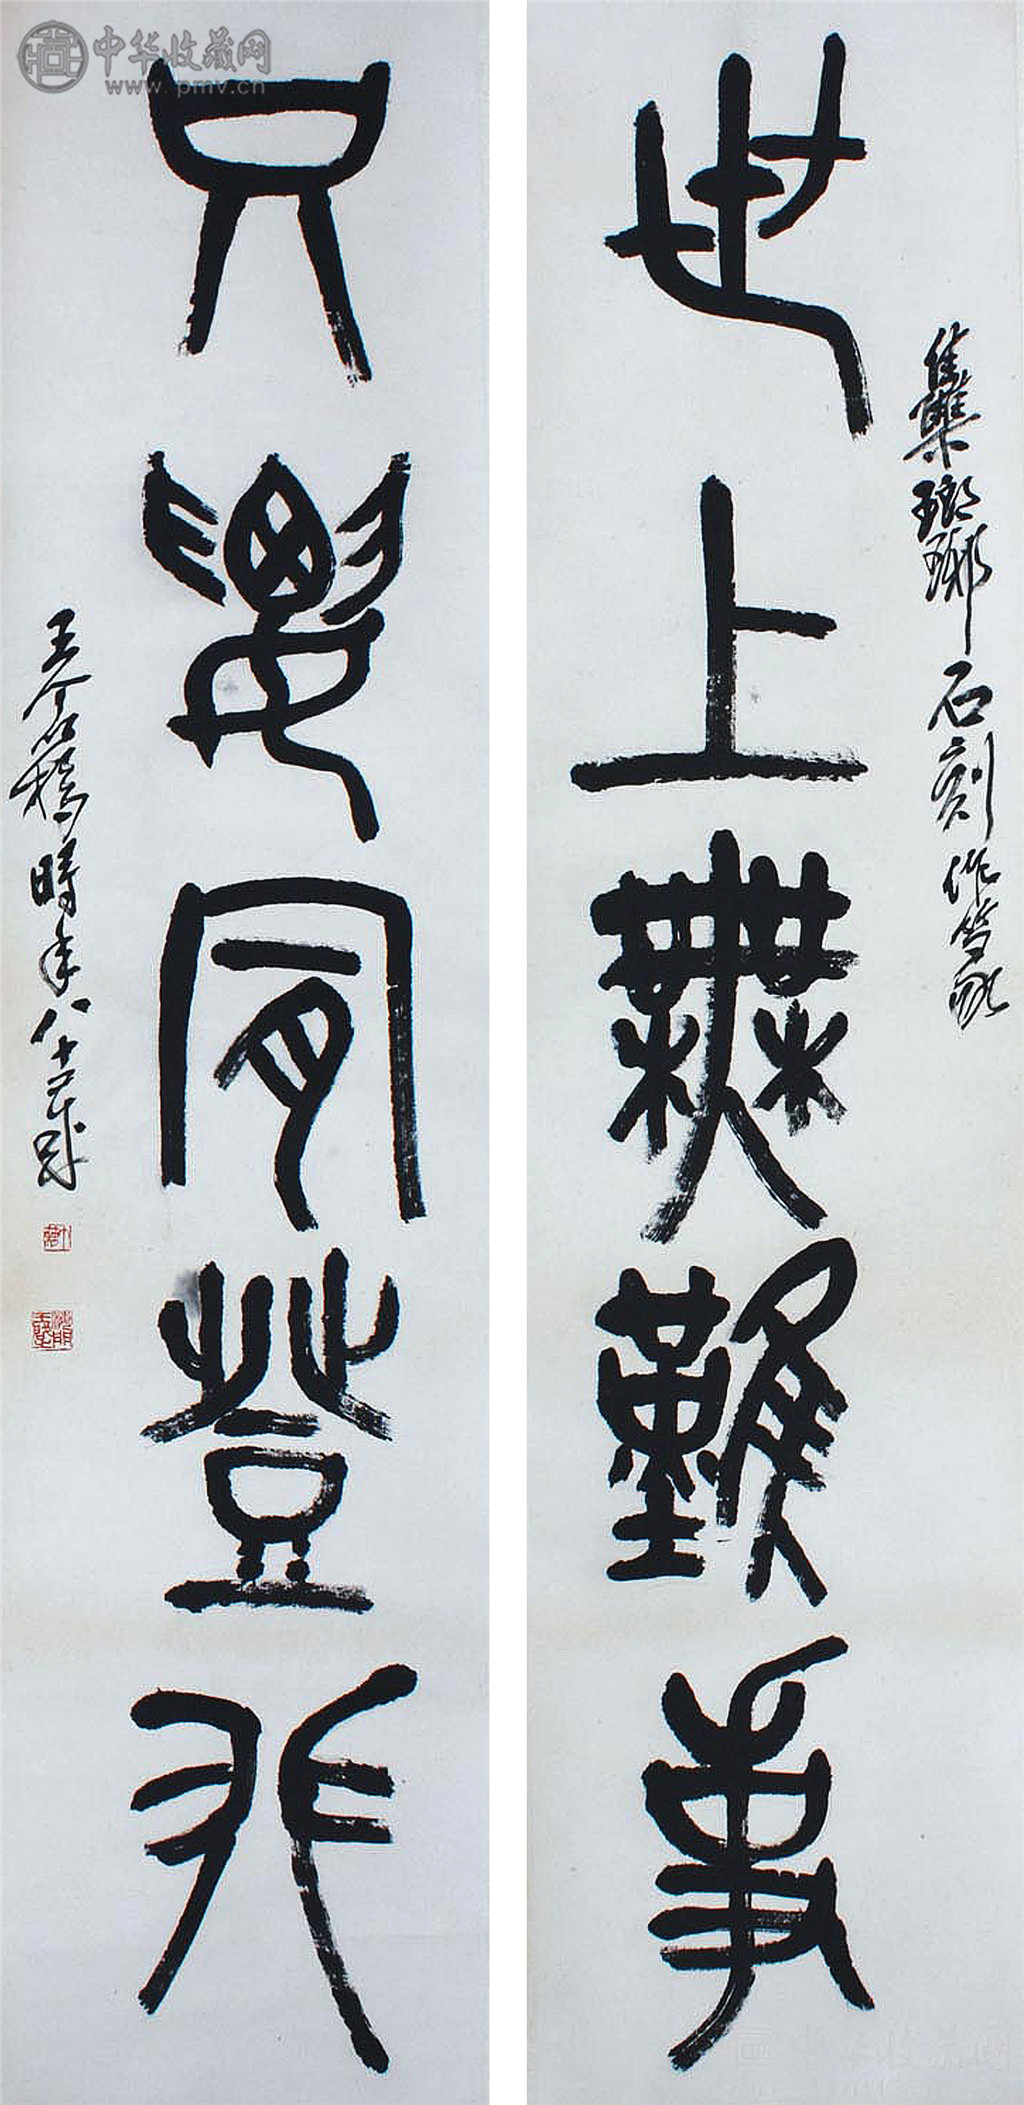 世上無難事
集瑯琊石刻作篆
只要肎登攀
王个簃時年八十四歲
中华收藏网
www.pmv.cn